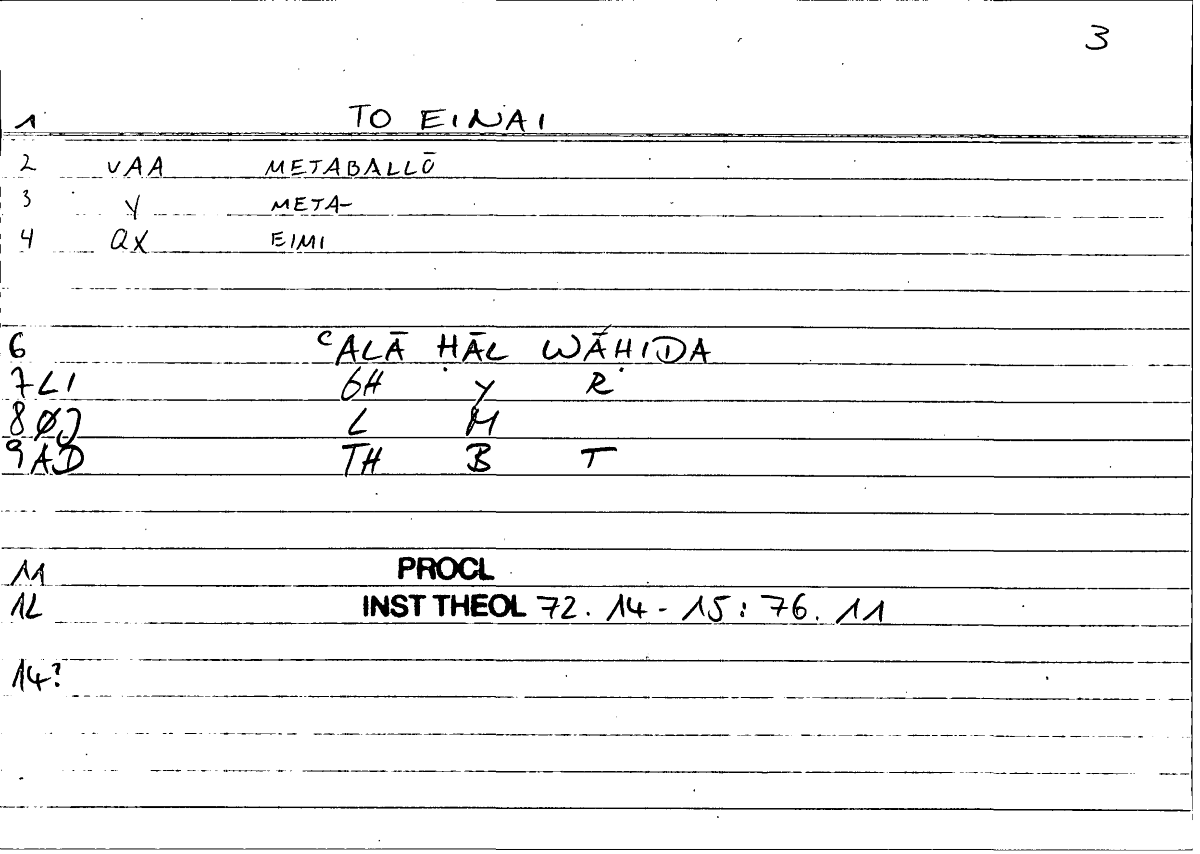 3
1 TO EINAI
2 VAA METABALLŌ
3 Y META-
4 QX EIMI
6 ʿALĀ ḤĀL WĀḤIDA
7LI GH Y R
8ØJ L M
9AD TH B T
11 PROCL
12 INST THEOL 72. 14 - 15 : 76. 11
14?